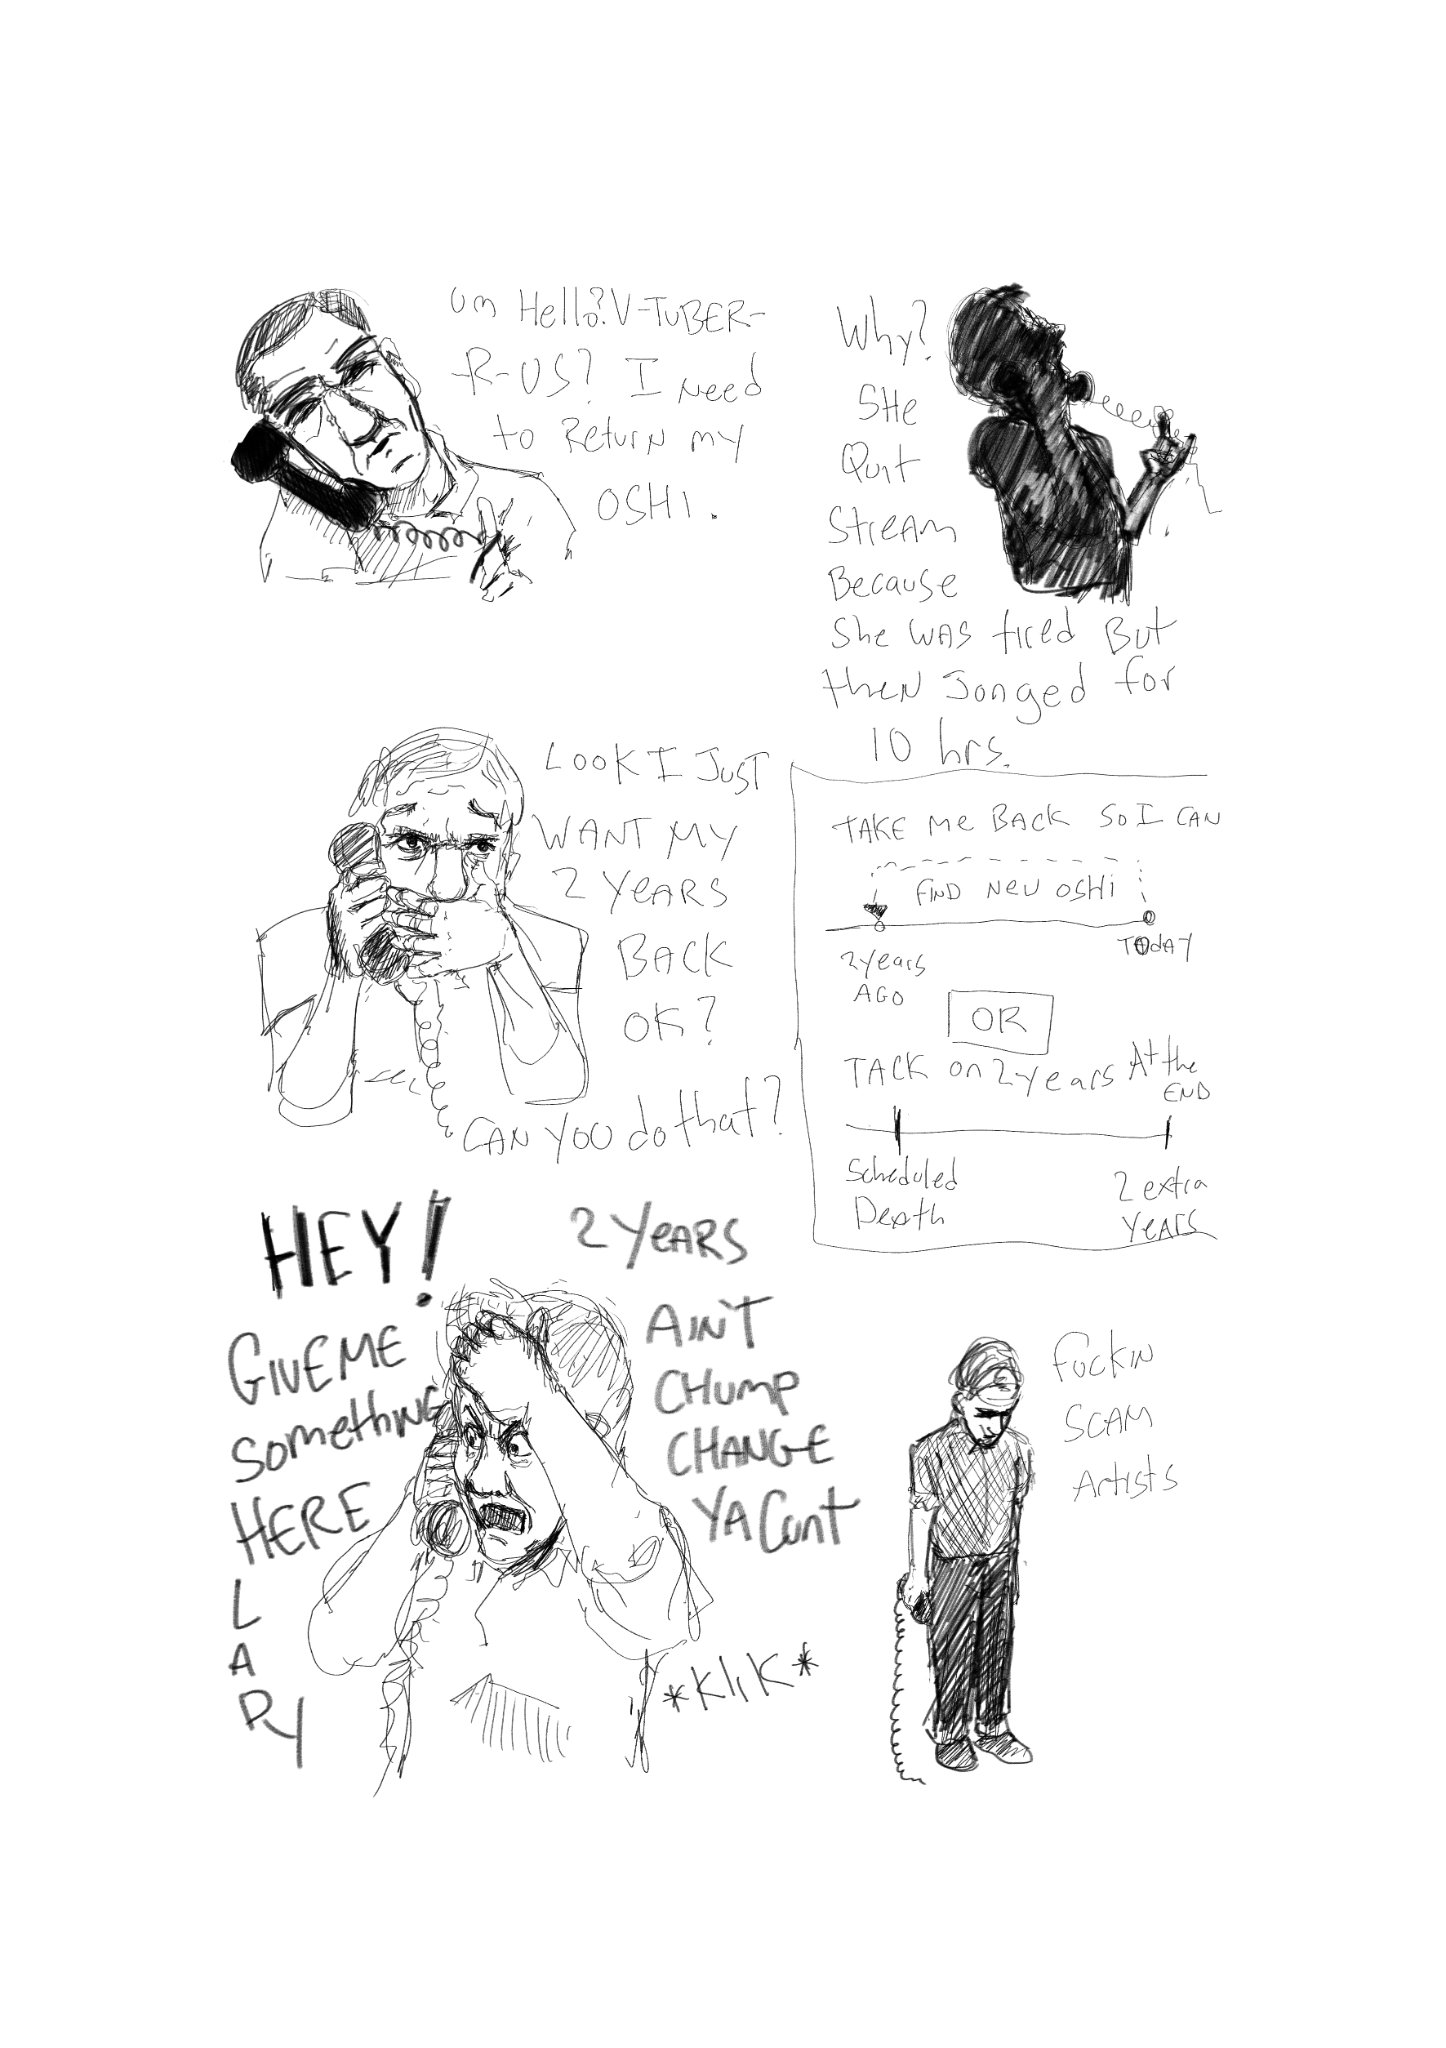 um Hello? V-TUBER-
-R-US? I Need
to Return my
OSHI.
Why?
SHe
Quit
Stream
Because
She was tired But
then Jonged for
10 hrs.
LOOK I JUST
WANT MY
2 YEARS
BACK
OK?
CAN YOU do that?
TAKE me BACK SO I CAN
FIND NEW OSHi
2 years
AGO
TOdAY
OR
TACK on 2 years At the
END
Scheduled
Death
2 extra
YEARS
HEY!
GIVE ME
Something
HERE
L
A
D
Y
2 YEARS
AIN'T
CHUMP
CHANGE
YA Cunt
*KliK*
Fuckin
SCAM
Artists